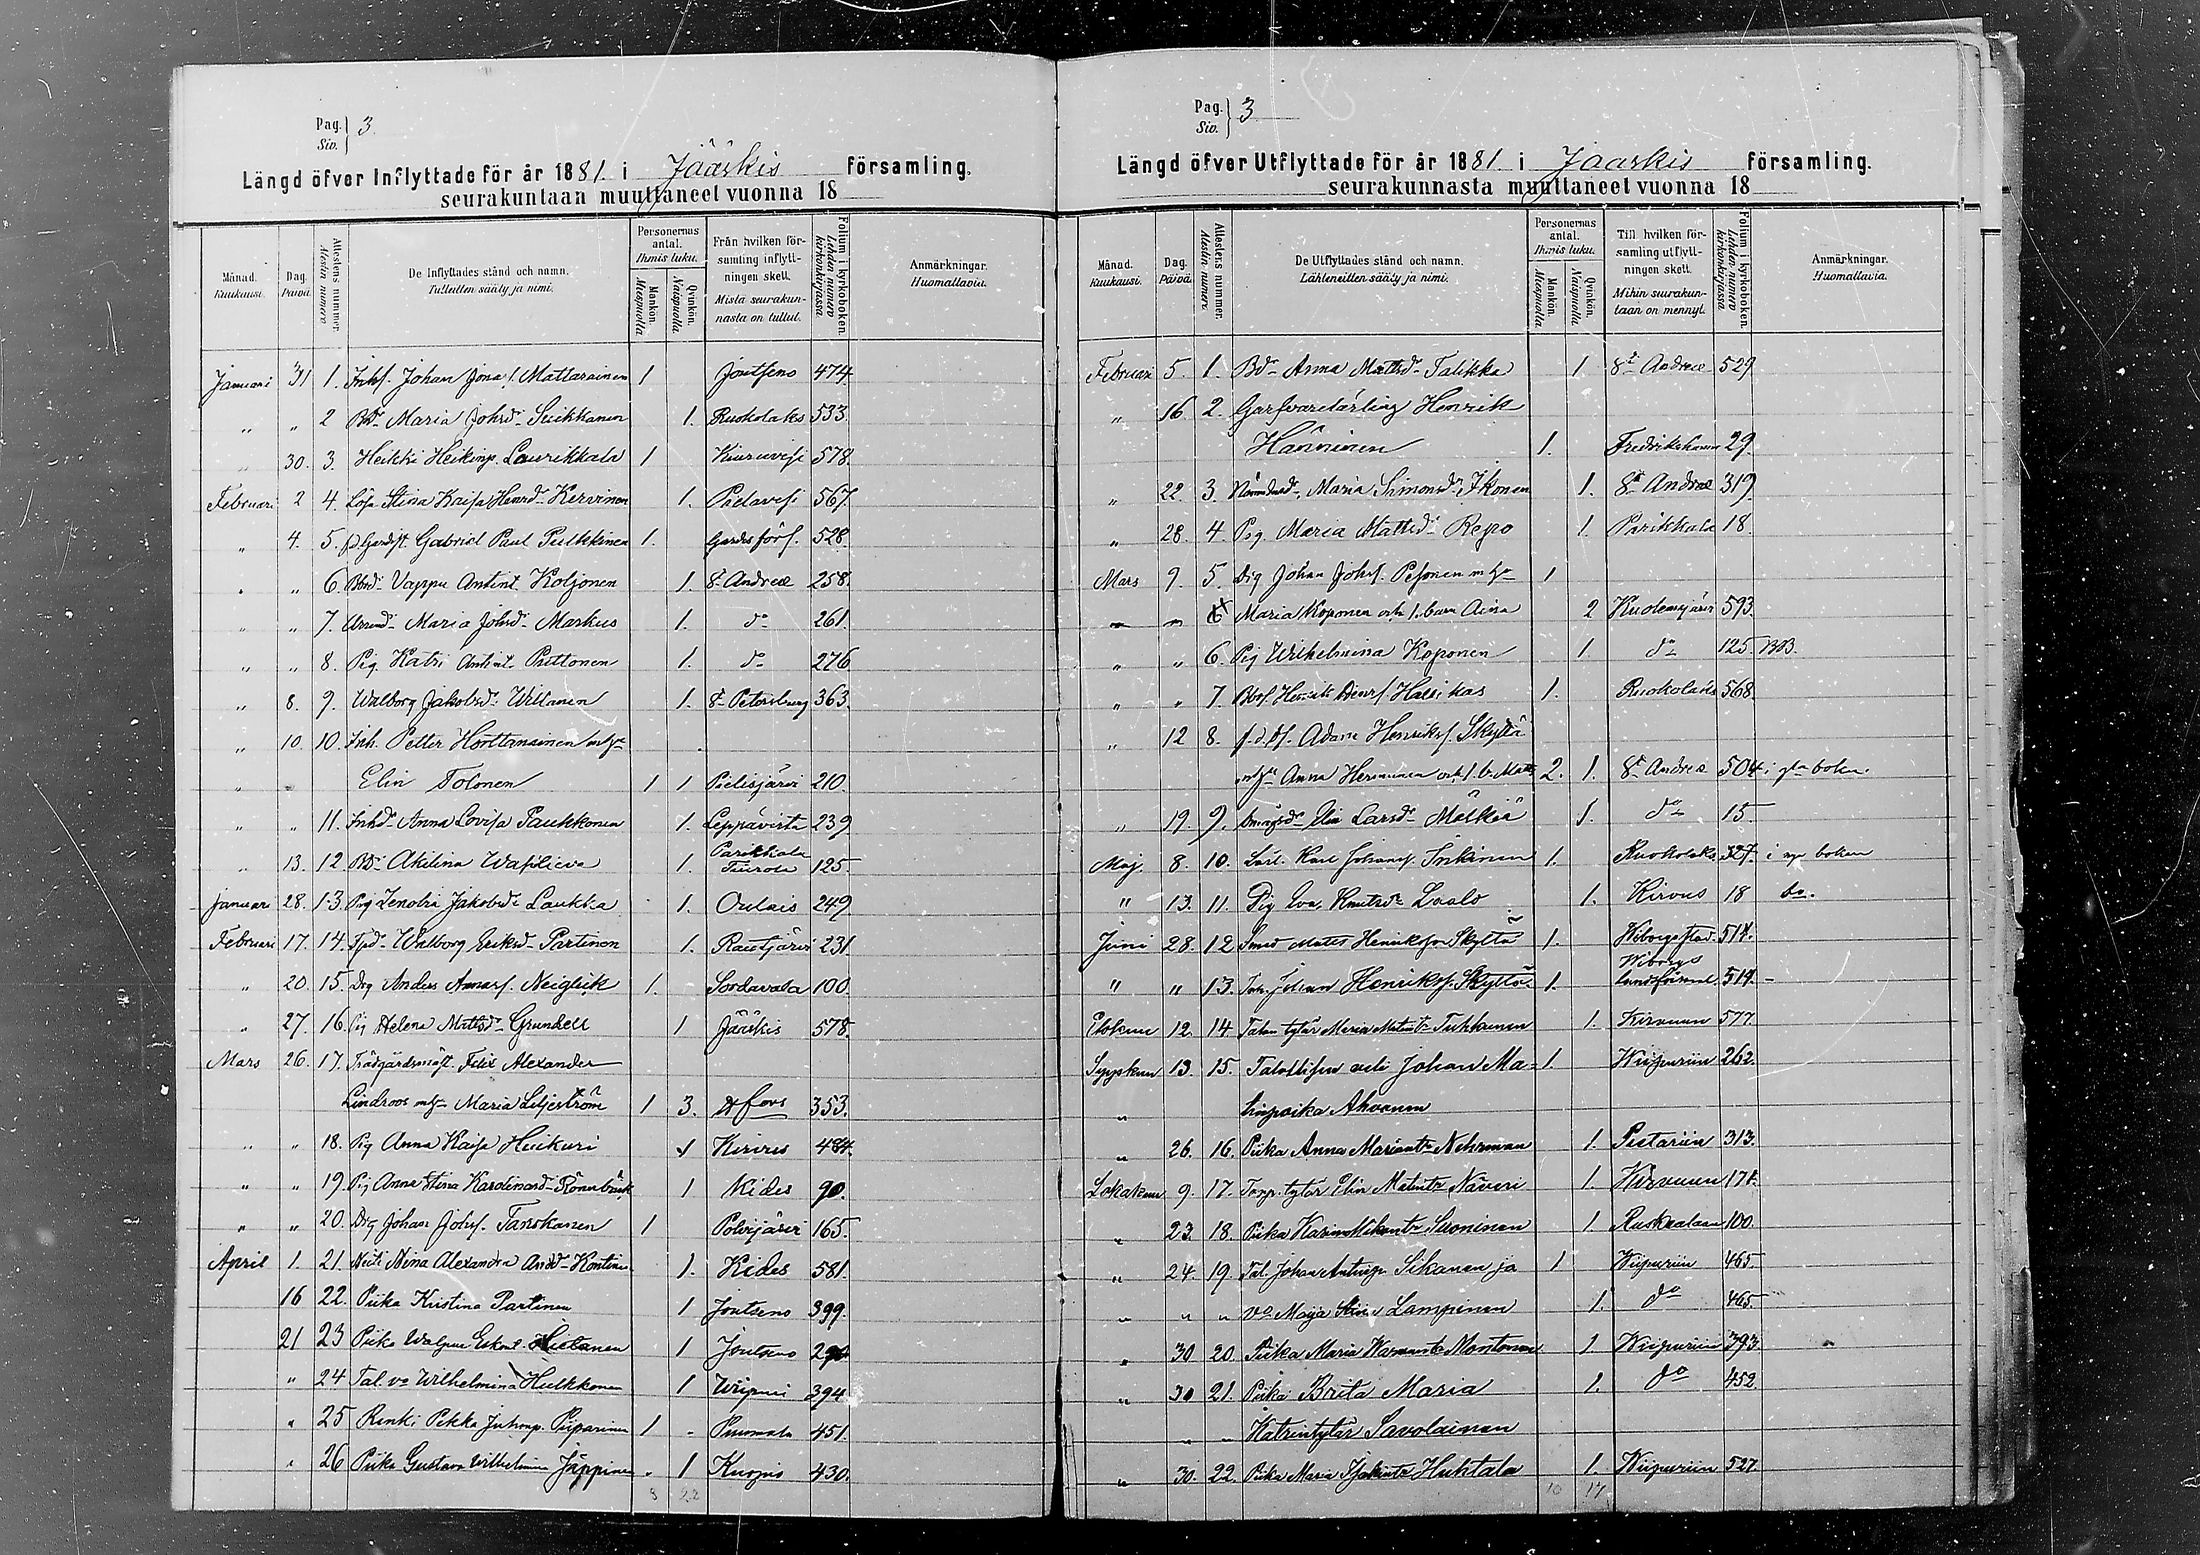 Pag. 3
Siv.
Längd öfver Inflyttade för år 1881. i Jääskis församling.
seurakuntaan muuttaneet vuonna 18
Månad. Kuukausi.
Dag. Päivä.
Attestens nummer. Atestin numero
De Inflyttades stånd och namn. Tulleitten sääty ja nimi.
Personernas antal. Ihmis luku.
Mankön. Miespuolia
Qvinkön. Naispuolia
Från hvilken församling inflyttningen skett. Mistä seurakunnasta on tullut.
Folium i kyrkoboken. Lehden numero kirkonkirjassa
Anmärkningar. Huomattavia.
Januari 31 1. Inhs. Johan Jona s. Mattarainen 1 Joutseno 474
" " 2 Maria Johsdr Suikkanen 1. Ruokolaks 533
" 30. 3. Heikki Heikinp. Laurikkala 1 Kiuruvesi 578
Februari 2 4. Lösa Stina Kaisa Henrdr Kervinen 1. Pielavesi 567.
" 4. 5. Gabriel Paul Pulkkinen 1. Gardes förs. 528.
" " 6. Vappu Antint. Koljonen 1. St Andreæ 258.
" " 7. Maria Johsdr Markus 1. do 261.
" " 8. Pig. Katri Antint. Puttonen 1. do 276
" 8. 9. Walborg Jakobsdr Willanen 1. St Petersburg 363.
" 10. 10. Inh. Petter Horttanainen m hu
" " Elin Tolonen 1 1 Pielisjärvi 210.
" " 11. Inhdr Anna Lovisa Paukkonen 1. Leppävirta 239
" 13. 12 Akilina Wasilieva 1. Parikkala Tiurola 125.
Januari 28. 13. Pig Lenobia Jakobsdr Laukka 1. Oulais 249
Februari 17. 14. Walborg Eriksdr Partinen 1. Rautjärvi 231.
" 20. 15. Drg Anders Anners. Neiglick 1. Sordavala 100.
" 27. 16. Pig Helena Mattsdr Grundell 1 Jääskis 578.
Mars 26. 17. Trädgårdsmäst. Felix Alexander
Lindroos m hu Maria Liljeström 1 3. H fors 353.
" " 18. Pig Anna Kaisa Huikuri 1 Kirvus 484.
" " 19. Pig Anna Stina Kardinard Rönnbäck 1 Kides 90.
" " 20. Drg Johan Johss. Tanskanen 1 Polvijärvi 165.
April 1. 21. Neiti Nina Alexandra Kontinen 1. Kides 581.
16 22. Piika Kristina Partinen 1 Joutseno 399.
21 23 Piika Walpuri Eskont. Hietanen 1 Joutseno
" 24 Tal. vo Wilhelmina Hulkkonen 1 Wiipuri 394
" 25 Renki Pekka Juhonp. Piiparinen 1 - Puumala 451.
" 26 Piika Gustava Wilhelmina Jäppinen 1 Kuopio 430.
8 22
Pag. 3
Siv.
Längd öfver Utflyttade för år 1881. i Jääskis församling.
seurakunnasta muuttaneet vuonna 18
Månad. Kuukausi.
Dag. Päivä.
Attestens nummer. Atestin numero.
De Utflyttades stånd och namn. Lähteneitten sääty ja nimi.
Personernas antal. Ihmis luku.
Mankön. Miespuolia
Qvinkön. Naispuolia
Till hvilken församling utflyttningen skett. Mihin seurakuntaan on mennyt.
Folium i kyrkoboken. Lehden numero kirkonkirjassa
Anmärkningar. Huomattavia.
Februari 5. 1. Bdr Anna Mattsdr Talikka 1 St Andreæ 529
" 16 2. Garfvarelärling Henrik
Hänninen 1. Fredrikshamn 29.
" 22 3. Maria Simonsdr Ikonen 1. St Andreæ 319.
" 28. 4. Pig. Maria Mattsdr Repo 1. Parikkala 18.
Mars 9. 5. Drg Johan Johss. Pesonen m hu 1
" " Maria Koponen och 1. barn Aina 2 Kuolemajärvi 593.
" " 6. Pig Wilhelmina Koponen 1 do 125.
" " 7. Henrik Henrs. Hallikas 1. Ruokolaks 568.
" 12 8. Adam Henrikss. Skyttä
m hu Anna Henninen och 1. b. Matts 2. 1. St Andreæ 504 i gla boken.
" 19. 9. Elin Larsdr Mälkiä 1. do 15.
Maj. 8. 10. Karl Johanss. Inkinen 1. Ruokolaks 327. i nya boken
" 13. 11. Pig Eva Knutsdr Laalo 1. Kirvus 18 do.
Juni 28. 12 Smed Matts Henriksson Skyttä 1. Wiborgs stad 514.
" " 13. Johan Henrikss. Skyttä 1. Wiborgs landsförsaml. 514. -
Elokuun 12. 14. Talon tytär Maria Matint. Tuhkunen 1. Kirvuun 577.
Syyskuun 13. 15. Talollisen veli Johan Ma- 1. Wiipuriin 262.
" tinpoika Ahvonen
" 26. 16. Piika Anna Marianntr Nehrman 1. Pietariin 313.
Lokakuun 9. 17. Torp. tytär Elin Matintr Näveri 1 Kirvuun 171.
" 23. 18. Piika Karin Mikontr Suoninen 1 Ruskealaan 100.
" 24. 19. Tal. Johan Antinp. Sikanen ja 1 Wiipuriin 465.
" " " vo Maija Stina Lampinen 1. do 465.
" 30 20. Piika Maria Montonen 1 Wiipuriin 393.
" 30 21. Piika Brita Maria 1. do 452.
" " Katrintytär Savolainen
" 30. 22. Piika Maria Huhtala 1. Wiipuriin 527.
10 17